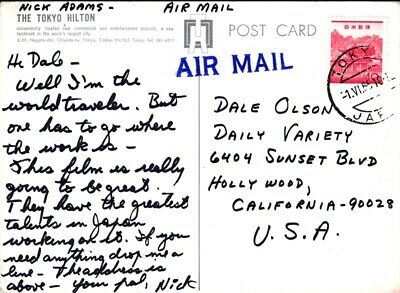 NICK ADAMS - AIR MAIL
THE TOKYO HILTON
conveniently located near commercial and entertainment districts, a new
landmark in the world's largest city.
POST CARD
AIR MAIL
TOKYO
JAP
Hi Dale -
Well I'm the
world traveler. But
one has to go where
the work is -
This film is really
going to be great.
They have the greatest
talents in Japan
working on it. If you
need anything drop me a
line - The address is
above - Your pal, Nick
DALE OLSON
DAILY VARIETY
6404 SUNSET BLVD
HOLLYWOOD,
CALIFORNIA - 90028
U.S.A.